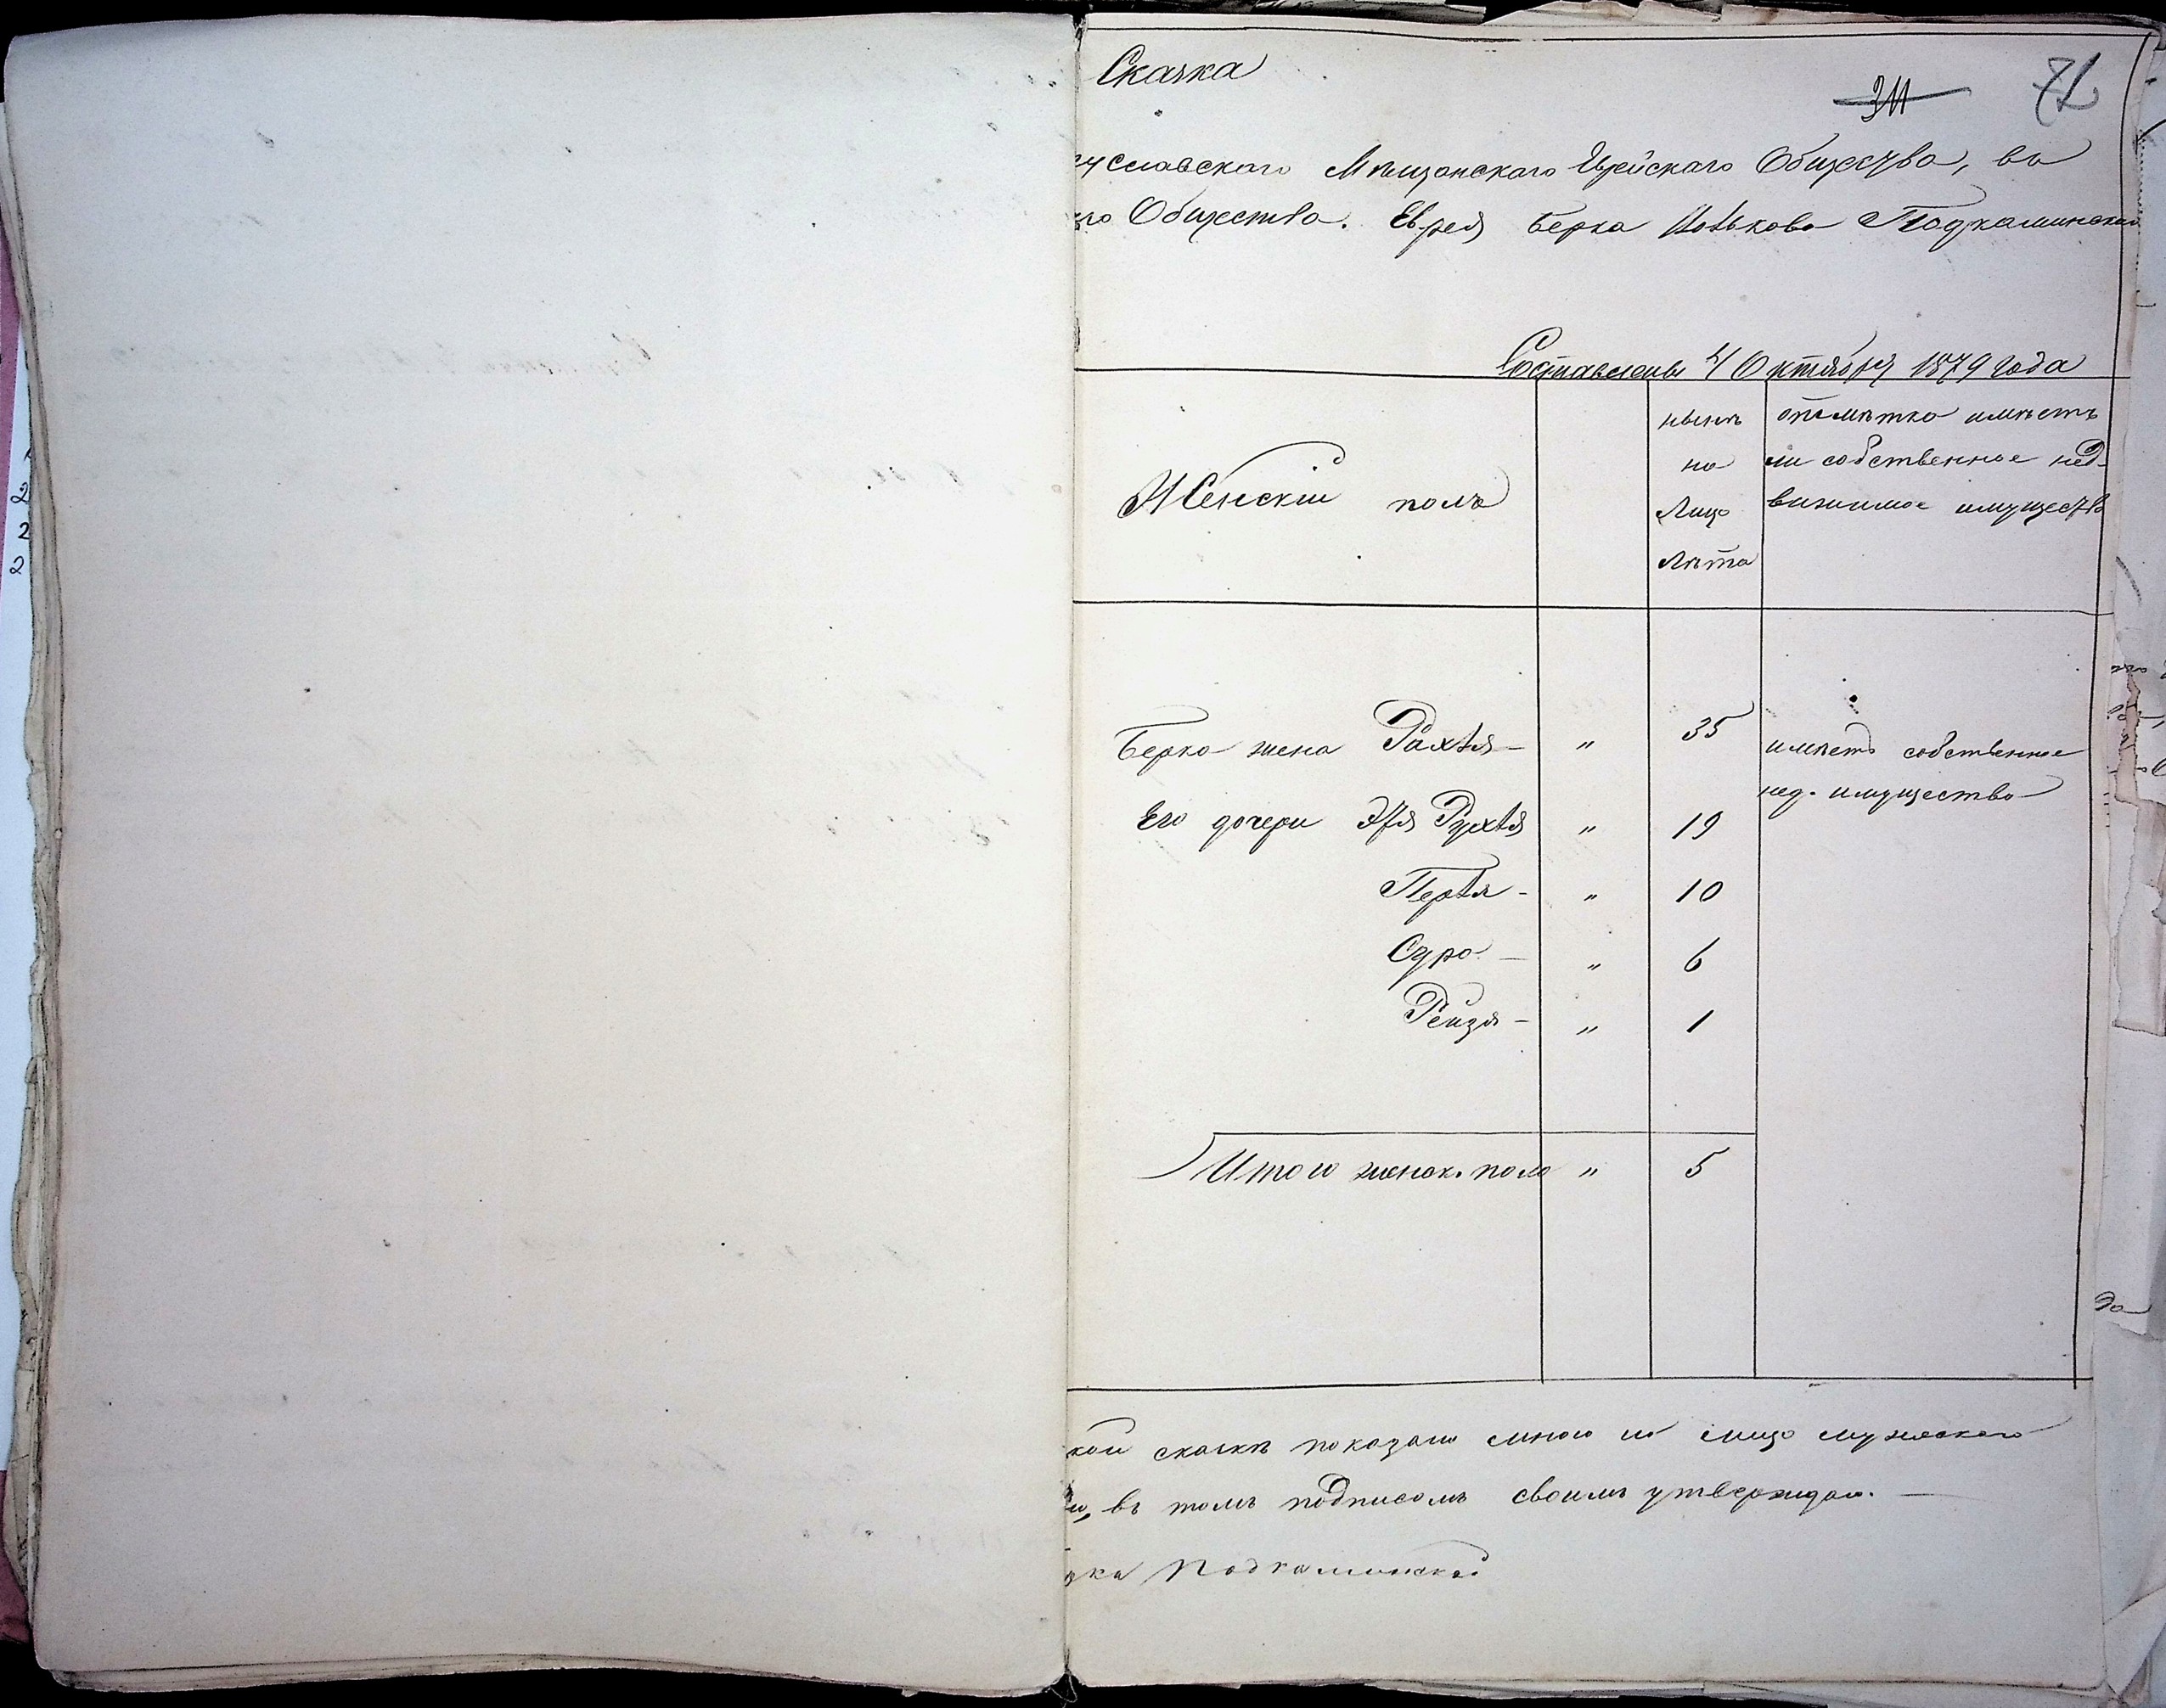 Сказка
311 71
уславскаго Мѣщанскаго Еврейскаго Общества, въ
го Общества. Еврея Берка Ицькова Подкаминскаго
Составлены 4 Октября 1879 года
Женскій полъ
нынѣ
на
лицо
лѣта
отмѣтка имѣетъ
ли собственное нед-
вижимое имуществ
Берка жена Рахля - " 35 имѣетъ собственное
нед. имущество
Его дочери Эля Рухля " 19
Перля - " 10
Сура - " 6
Рейзя - " 1
Итого женск. пола " 5
кой сказкѣ показаны мною на лицо мужескаго
въ томъ подписомъ своимъ утверждаю.
рка Подкаминской